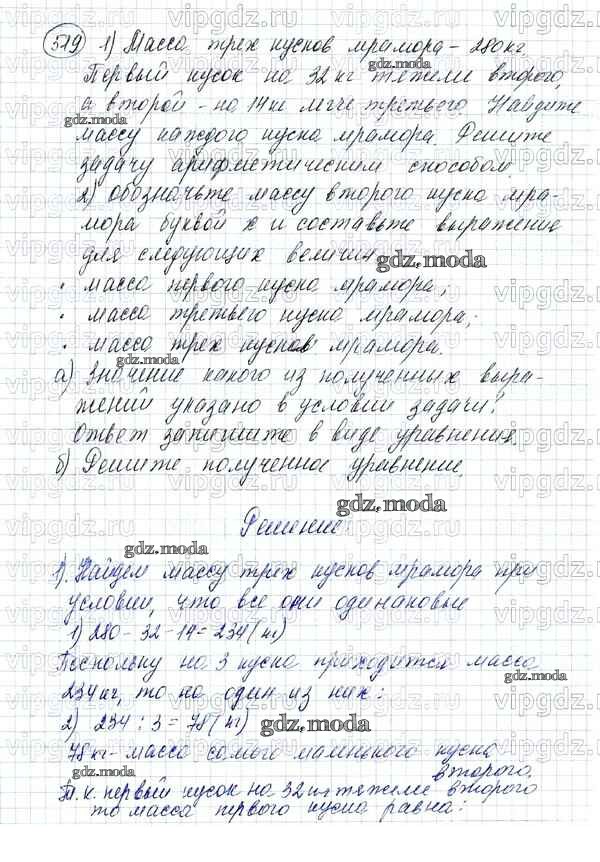 519 1) Масса трех кусков мрамора - 280 кг
Первый кусок на 32 кг тяжели второго,
а второй - на 14 кг легче третьего. Найдите
массу каждого куска мрамора. Решите
задачу арифметическим способом.
2) обозначьте массу второго куска мра-
мора буквой x и составьте выражение
для следующих величин
• масса первого куска мрамора;
• масса третьего куска мрамора;
• масса трех кусков мрамора.
а) Значение какого из полученных выра-
жений указано в условии задачи?
Ответ запишите в виде уравнения.
б) Решите полученное уравнение.
Решение
1). Найдем массу трех кусков мрамора при
условии, что все они одинаковые
1) 280 - 32 - 14 = 234 (кг)
Поскольку на 3 куска приходится масса
234 кг, то на один из них:
2) 234 : 3 = 78 (кг)
78 кг - масса самого маленького куска
второго.
Т.к. первый кусок на 32 кг тяжелее второго
то масса первого куска равна:
gdz.moda
vipgdz.ru